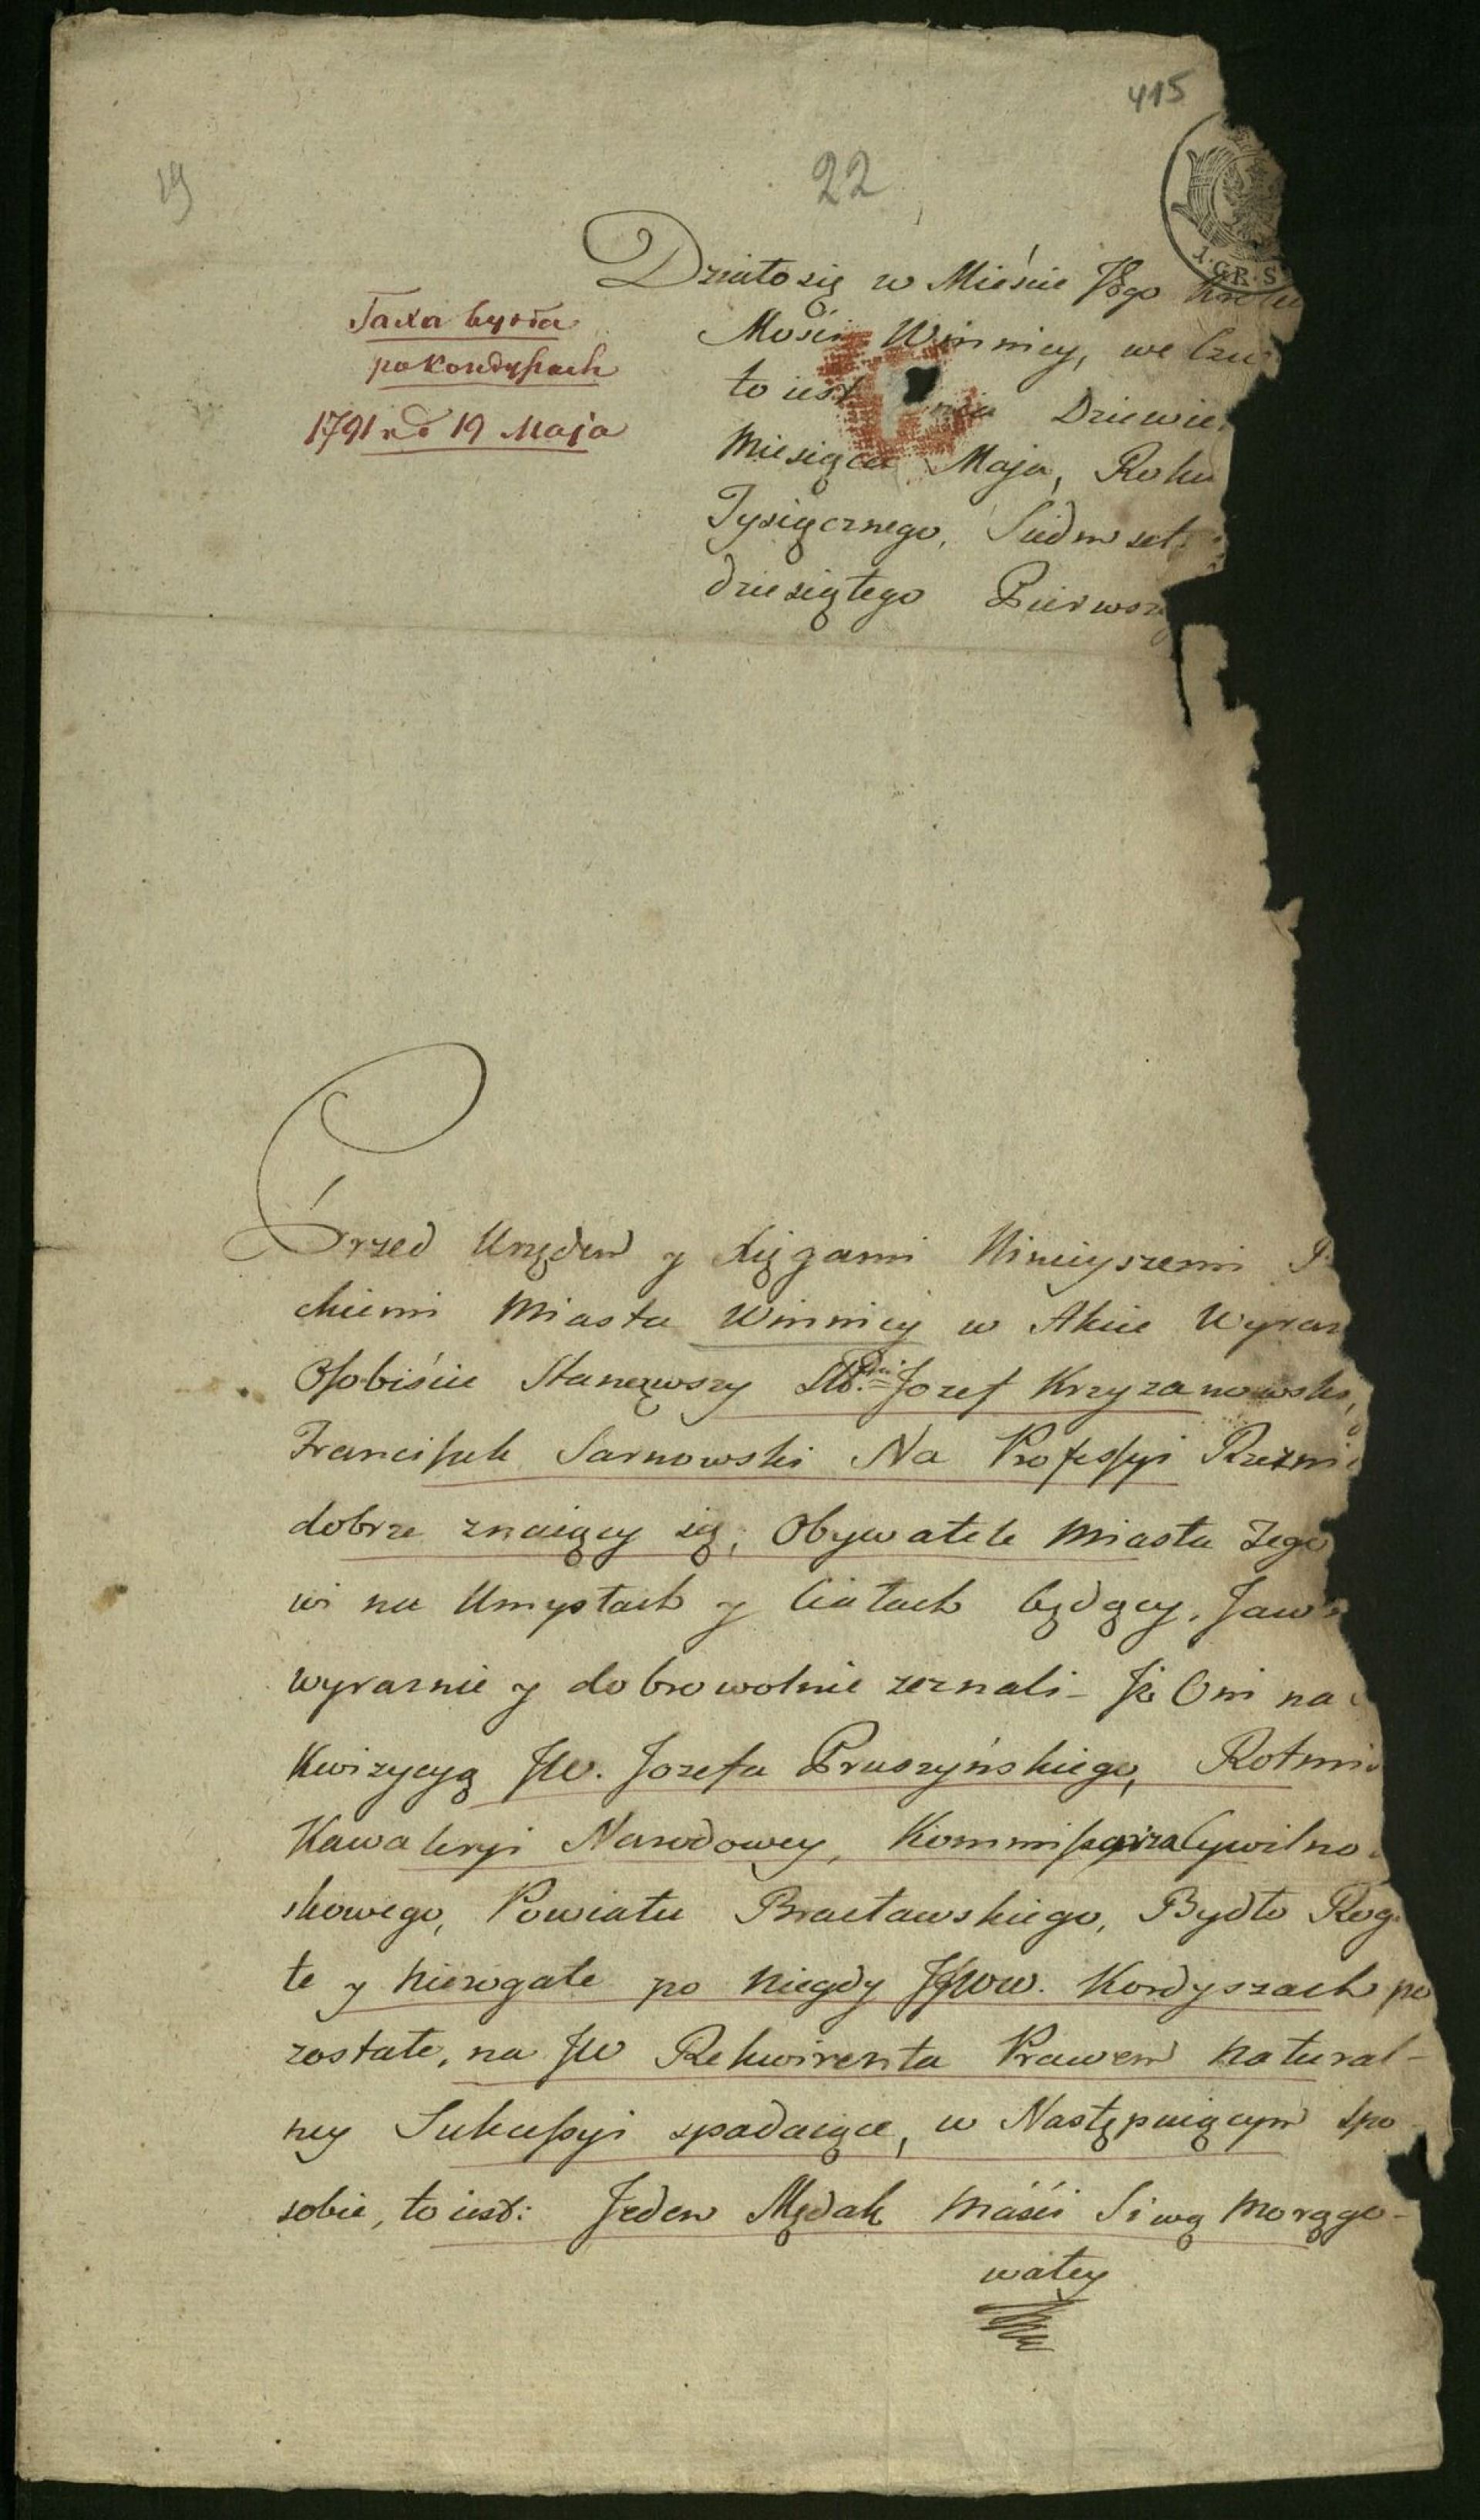 415
22
19
1.GR.S
Działo się w Mieście Jego
Mości Winnicy, we
to iest Dnia Dziewie
Miesiąca Maja, Roku
Tysiącznego, Siedmset
dziesiątego Pierwsz
Taxa bydła
po Kordyszach
1791 r. d 19 Maja
Przed Urzędem y Xięgami Ninieyszemi
chiemi Miasta Winnicy w Akcie Wyraz
Osobiście Stanąwszy Józef Krzyzanowski,
Franciszek Sarnowski Na Professyi Rzezni
dobrze znaiący się, Obywatele Miasta Tego
wi na Umysłach y Ciałach będący, Jaw
wyraznie y dobrowolnie zeznali – Iż Oni na
kwizycyą JW. Jozefa Pruszyńskiego, Rotmi
Kawaleryi Narodowey, Kommissarza Cywilno
skowego, Powiatu Bracławskiego, Bydło Roga
te y nierogate po niegdy JJWW. Kordyszach po
zostałe, na JW Rekwirenta Prawem natural-
ney Sukcessyi spadaiące, w Następuiącym spo-
sobie, to iest: Jeden Mędak Maści Siwą Morągo-
watey